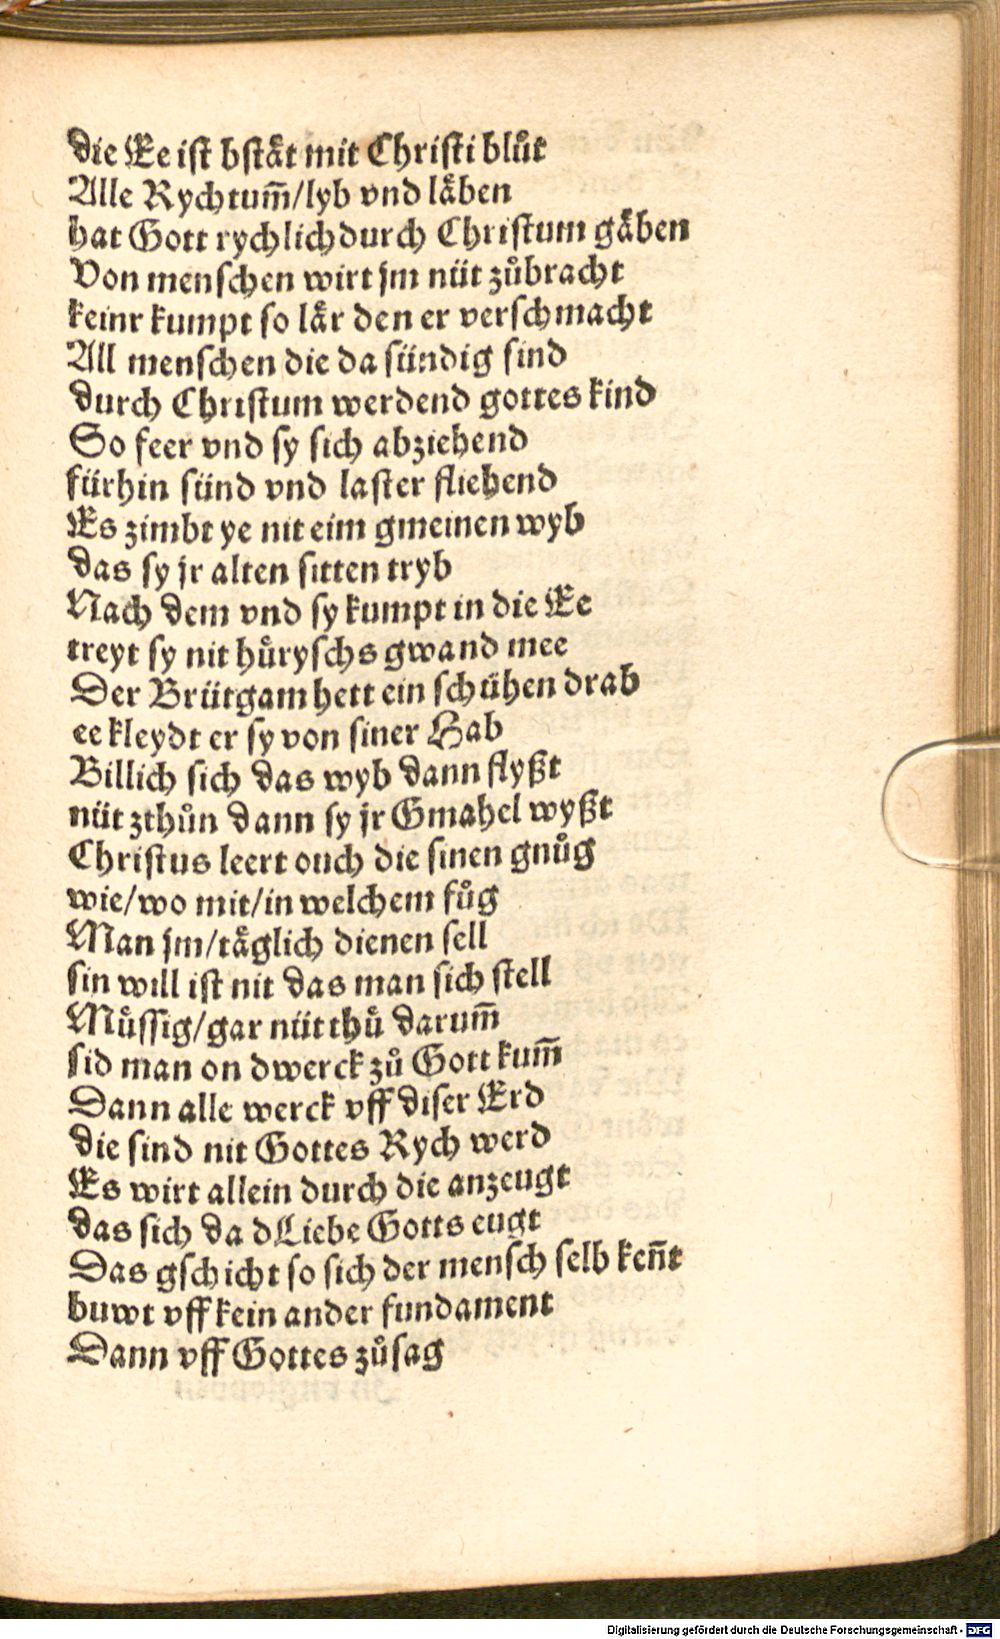 die Ee ist bståt mit Christi blůt
Alle Rychtum̄/lyb vnd låben
hat Gott rychlich durch Christum gåben
Von menschen wirt jm nüt zůbracht
keinr kumpt so lår den er verschmacht
All menschen die da sündig sind
durch Christum werdend gottes kind
So feer vnd sy sich abziehend
fürhin sünd vnd laster fliehend
Es zimbt ye nit eim gmeinen wyb
das sy jr alten sitten tryb
Nach dem vnd sy kumpt in die Ee
treyt sy nit hůryschs gwand mee
Der Brütgam hett ein schühen drab
ee kleydt er sy von siner Hab
Billich sich das wyb dann flyßt
nüt zthůn dann sy jr Gmahel wyßt
Christus leert ouch die sinen gnůg
wie/wo mit/in welchem fůg
Man jm/tåglich dienen sell
sin will ist nit das man sich stell
Můssig/gar nüt thů darum̄
sid man on dwerck zů Gott kum̄
Dann alle werck vff diser Erd
die sind nit Gottes Rych werd
Es wirt allein durch die anzeugt
das sich da dLiebe Gotts eugt
Das gschicht so sich der mensch selb ken̄t
buwt vff kein ander fundament
Dann vff Gottes zůsag
Digitalisierung gefördert durch die Deutsche Forschungsgemeinschaft - DFG